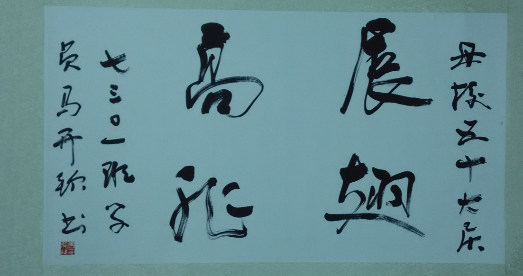 母校五十大庆
展翅
高飛
七三〇一班学
员马开珍书